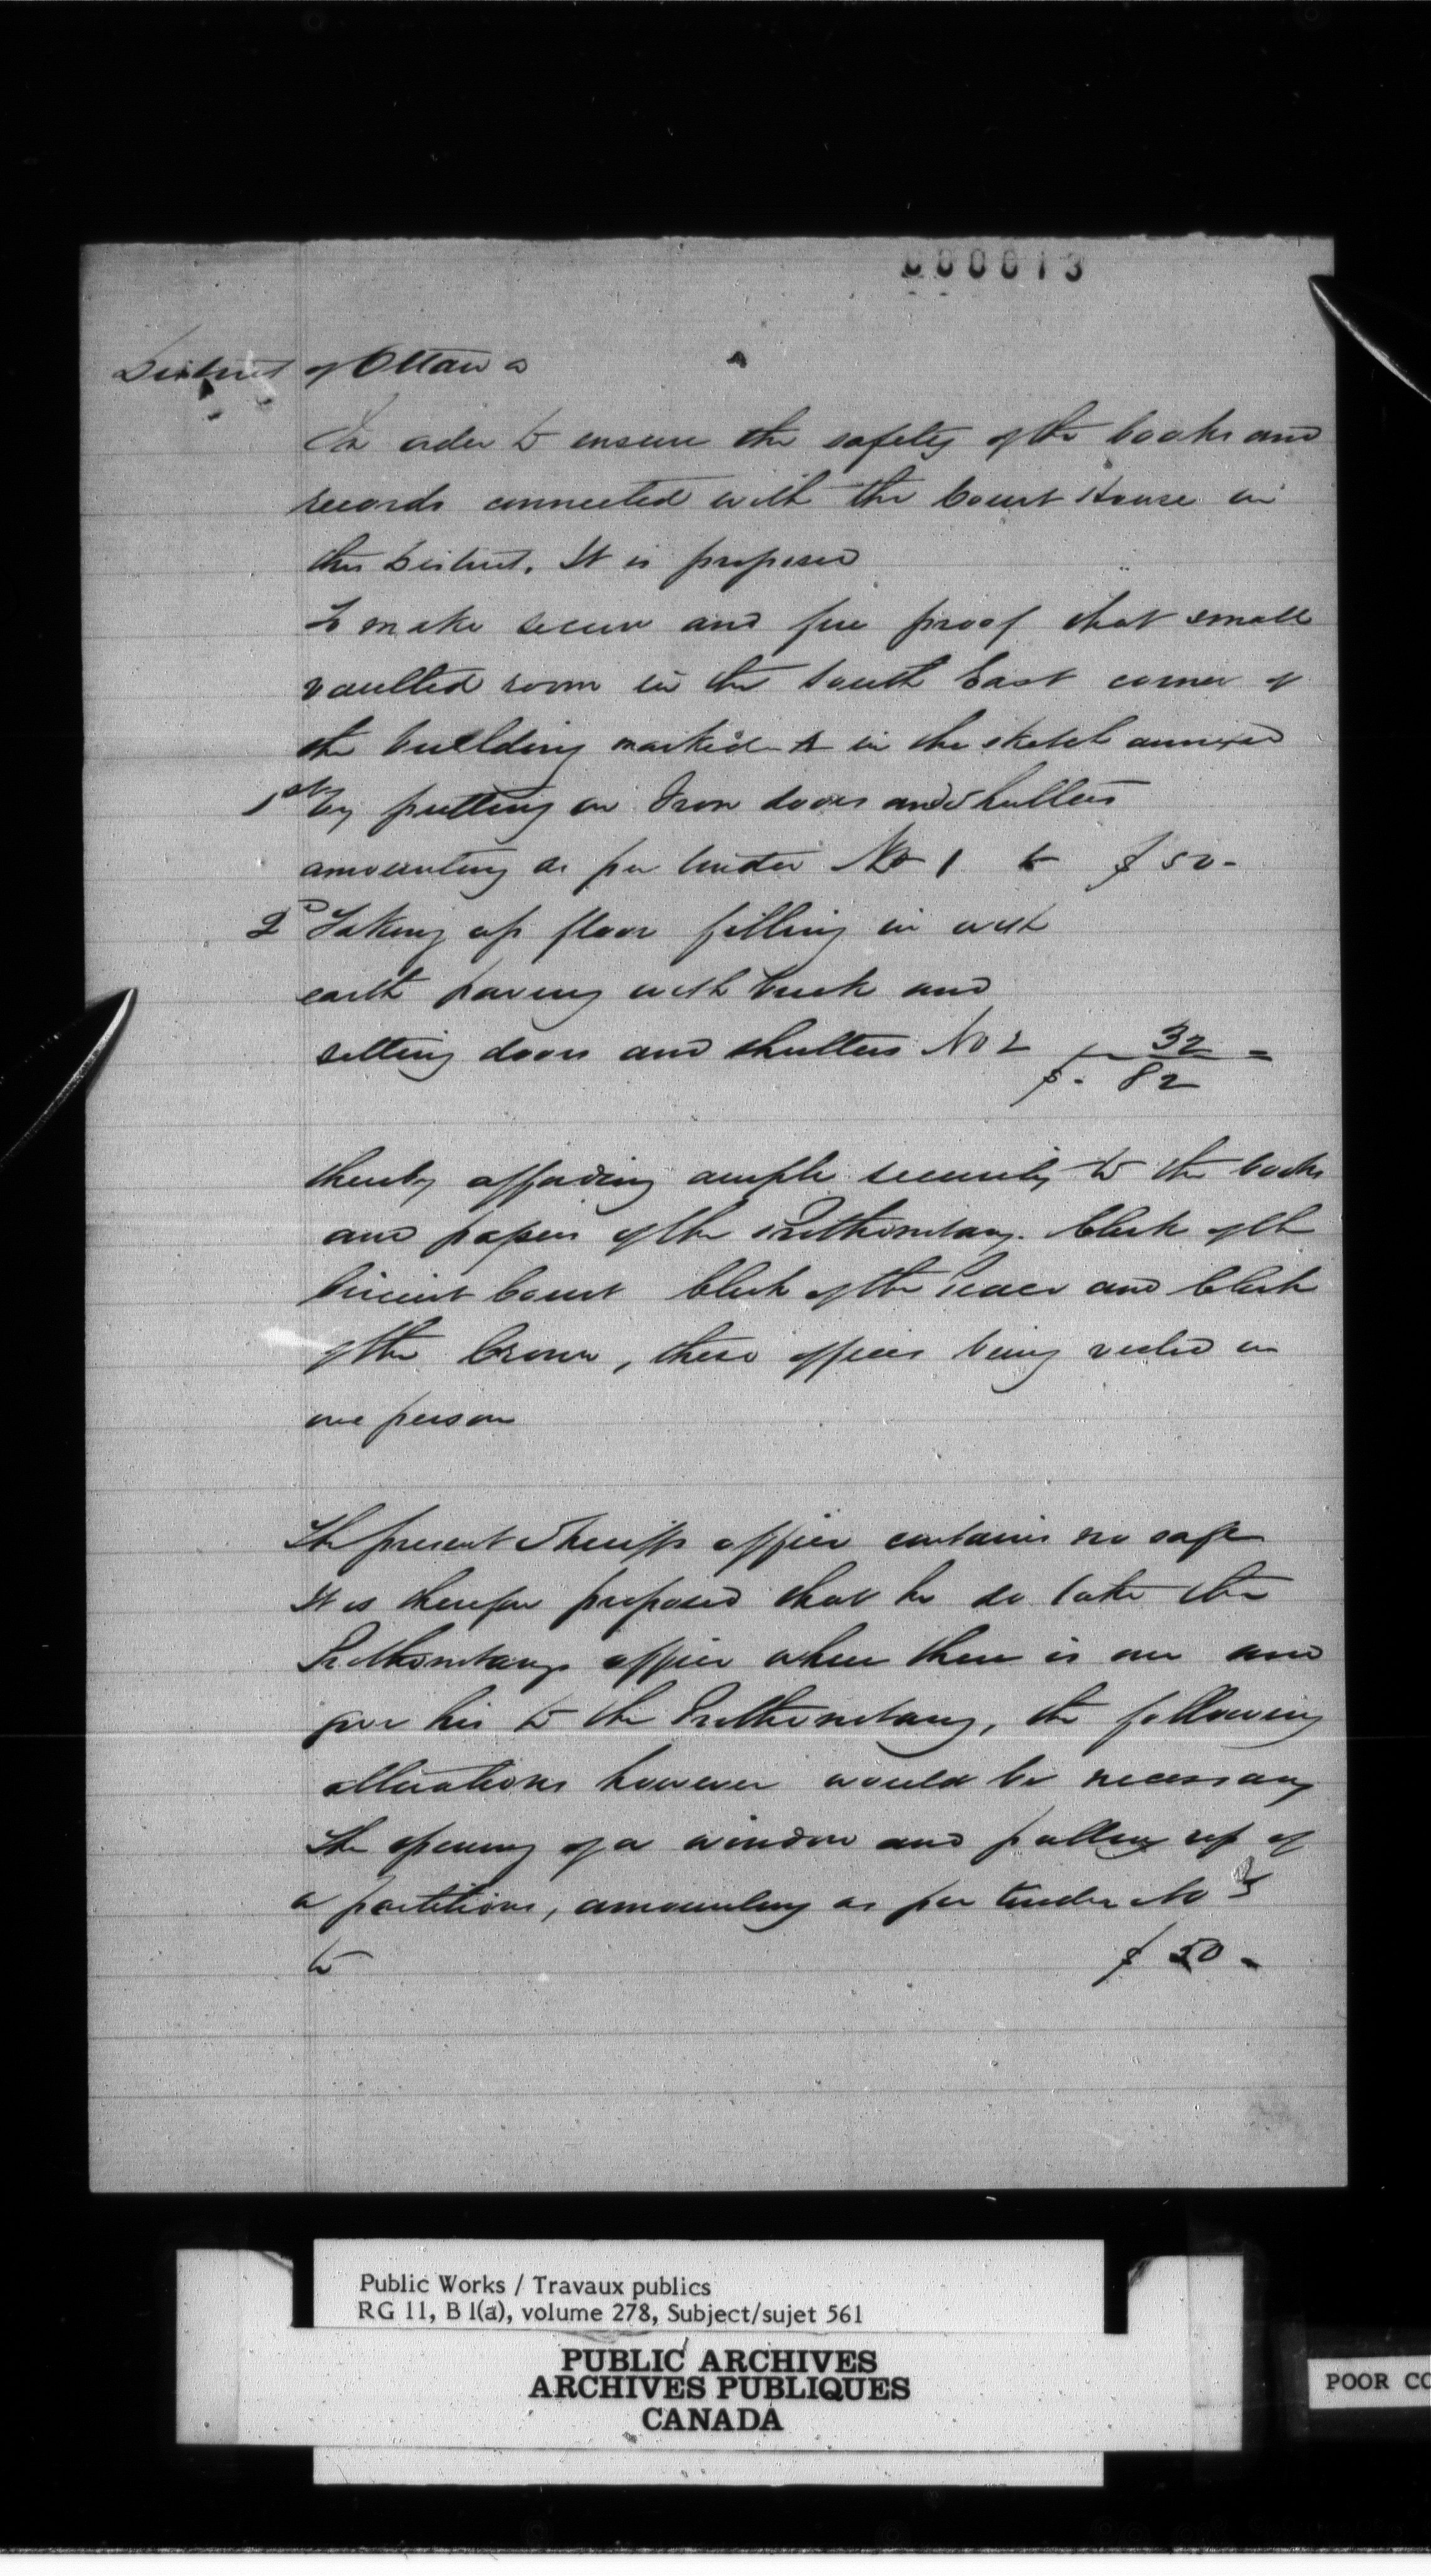 000013
District of Ottawa
In order to ensure the safety of the books and
records connected with the Court House in
this District. It is proposed
To make secure and fire proof that small
vaulted room in the South East corner of
the building marked A in the sketch annexed
1st by putting on Iron doors and Shutters
amounting as per tender No 1 to $ 50-
2d Taking up floor filling in with
earth paving with brick and
setting doors and shutters No 2 32
$. 82
thereby affording ample security to the books
and papers of the Prothonotary. Clerk of the
Circuit Court Clerk of the Peace and Clerk
of the Crown, these offices being vested in
one person
The present Sheriffs office contains no safe
It is therefore proposed that he do take the
Prothonotarys office where there is one and
give his to the Prothonotary, the following
alterations however would be necessary
The opening of a window and putting up of
a partition, amounting as per tender No 3
to $ 50-
Public Works / Travaux publics
RG 11, B 1(a), volume 278, Subject/sujet 561
PUBLIC ARCHIVES
ARCHIVES PUBLIQUES
CANADA
POOR CO